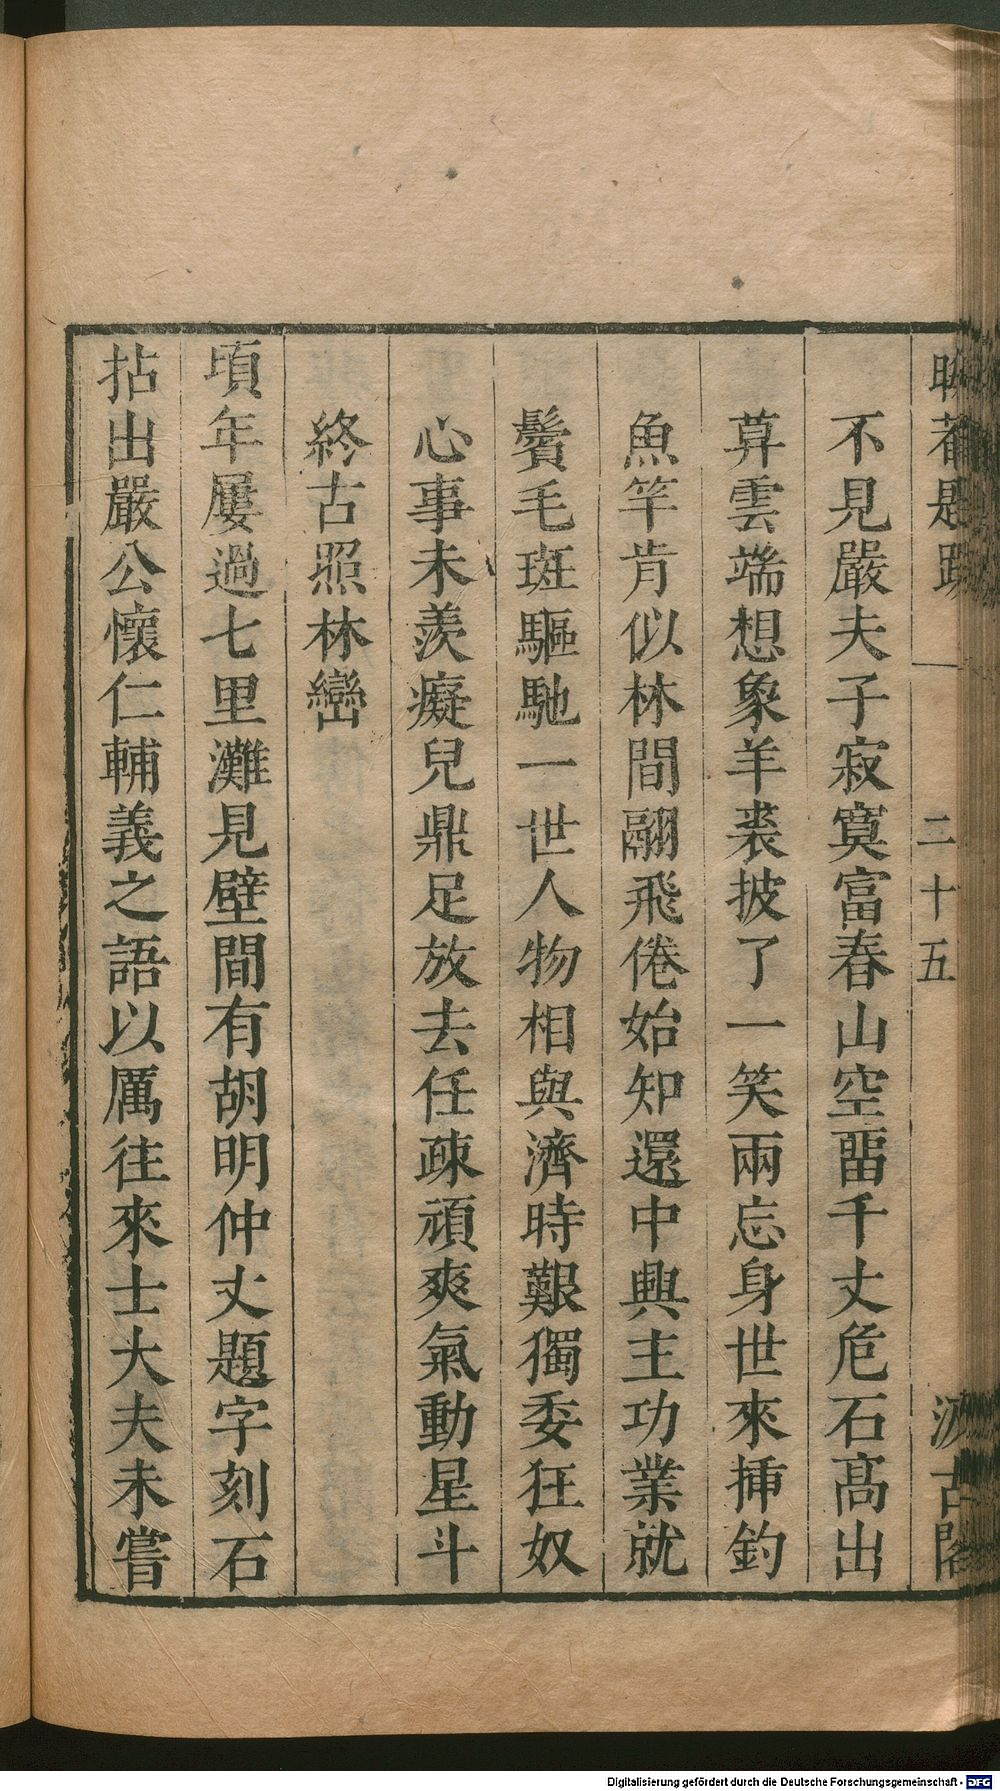 晦菴題跋 一 二十五 汲古閣
不見嚴夫子寂寞富春山空畱千丈危石高出
暮雲端想象羊裘披了一笑兩忘身世來揷釣
魚竿肯似林間翮飛倦始知還中興主功業就
鬢毛斑驅馳一世人物相與濟時艱獨委狂奴
心事未羨癡兒鼎足放去任疎頑爽氣動星斗
終古照林巒
頃年屢過七里灘見壁間有胡明仲丈題字刻石
拈出嚴公懷仁輔義之語以厲往來士大夫未嘗
Digitalisierung gefördert durch die Deutsche Forschungsgemeinschaft - DFG